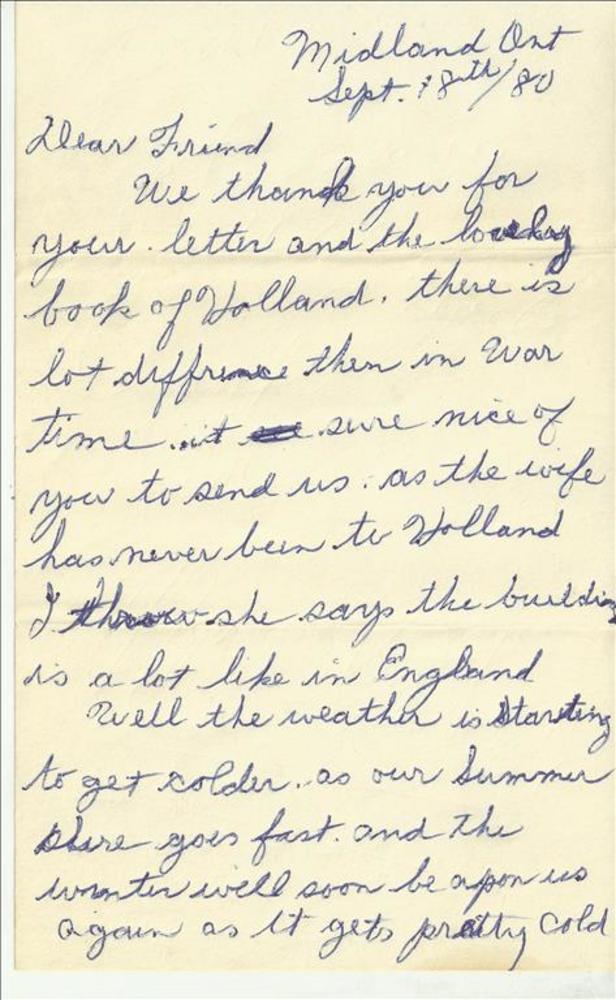 Midland Ont
Sept. 18th/80
Dear Friend
We thank you for
your letter and the lovely
book of Holland. there is
lot diffrence then in War
time. it sure nice of
you to send us. as the wife
has never been to Holland
I she says the building
is a lot like in England
Well the weather is starting
to get colder. as our Summer
shure goes fast. and the
winter will soon be apon us
again as it gets pretty cold